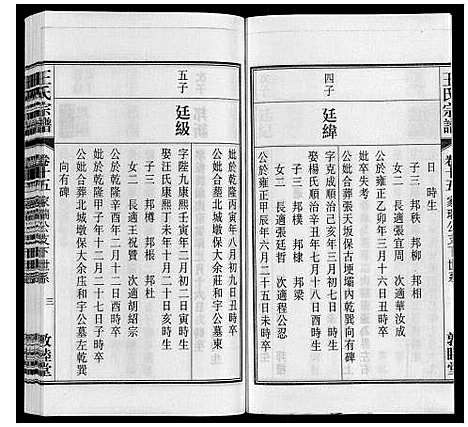 王氏宗譜
卷十五
日 時生
子三 邦秩 邦柳 邦相
女二 長適張宜周 次適華汝成
公於雍正乙卯年三月十六日丑時卒
妣卒失考
公妣合葬張天坂保古埂壩內乾巽向有碑
四子 廷緯
字克成順治己亥年三月初三日子時生
娶楊氏順治辛丑年七月十八日酉時生
子三 邦樸 邦棣 邦梁
女二 長適張廷哲 次適程公忍
公於雍正甲辰年六月二十五日未時卒
敦睦堂
王氏宗譜
卷十五
家瑞公支下世系
三
敦睦堂
妣於乾隆丙寅年八月初九日丑時卒
公妣合葬北城墩保大余莊和宇公墓東
五子 廷級
字陛九康熙壬寅年二月初二日寅時生
娶汪氏康熙丁未年十月二十日亥時生
子三 邦樽 邦棖 邦杜
女二 長適王祝贊 次適胡紹宗
公於乾隆辛酉年二月十二日丑時卒
妣於乾隆甲子年十二月二十七日子時卒
公妣合葬北城墩保大余庄和宇公墓左乾巽
向有碑